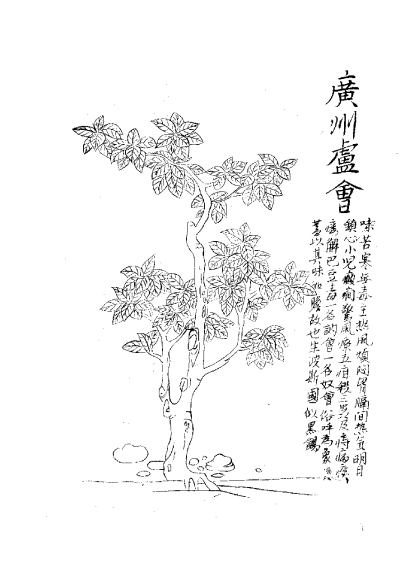 廣州盧會
味苦寒毋毒主熱風煩悶胷膈間熱氣明目
鎮心小兒癲癇驚風療五疳殺三虫及痔病瘡
瘻解巴豆毒一名訥會一名奴會俗呼為象
蓋以其味如膽故也生波斯國似黑餳